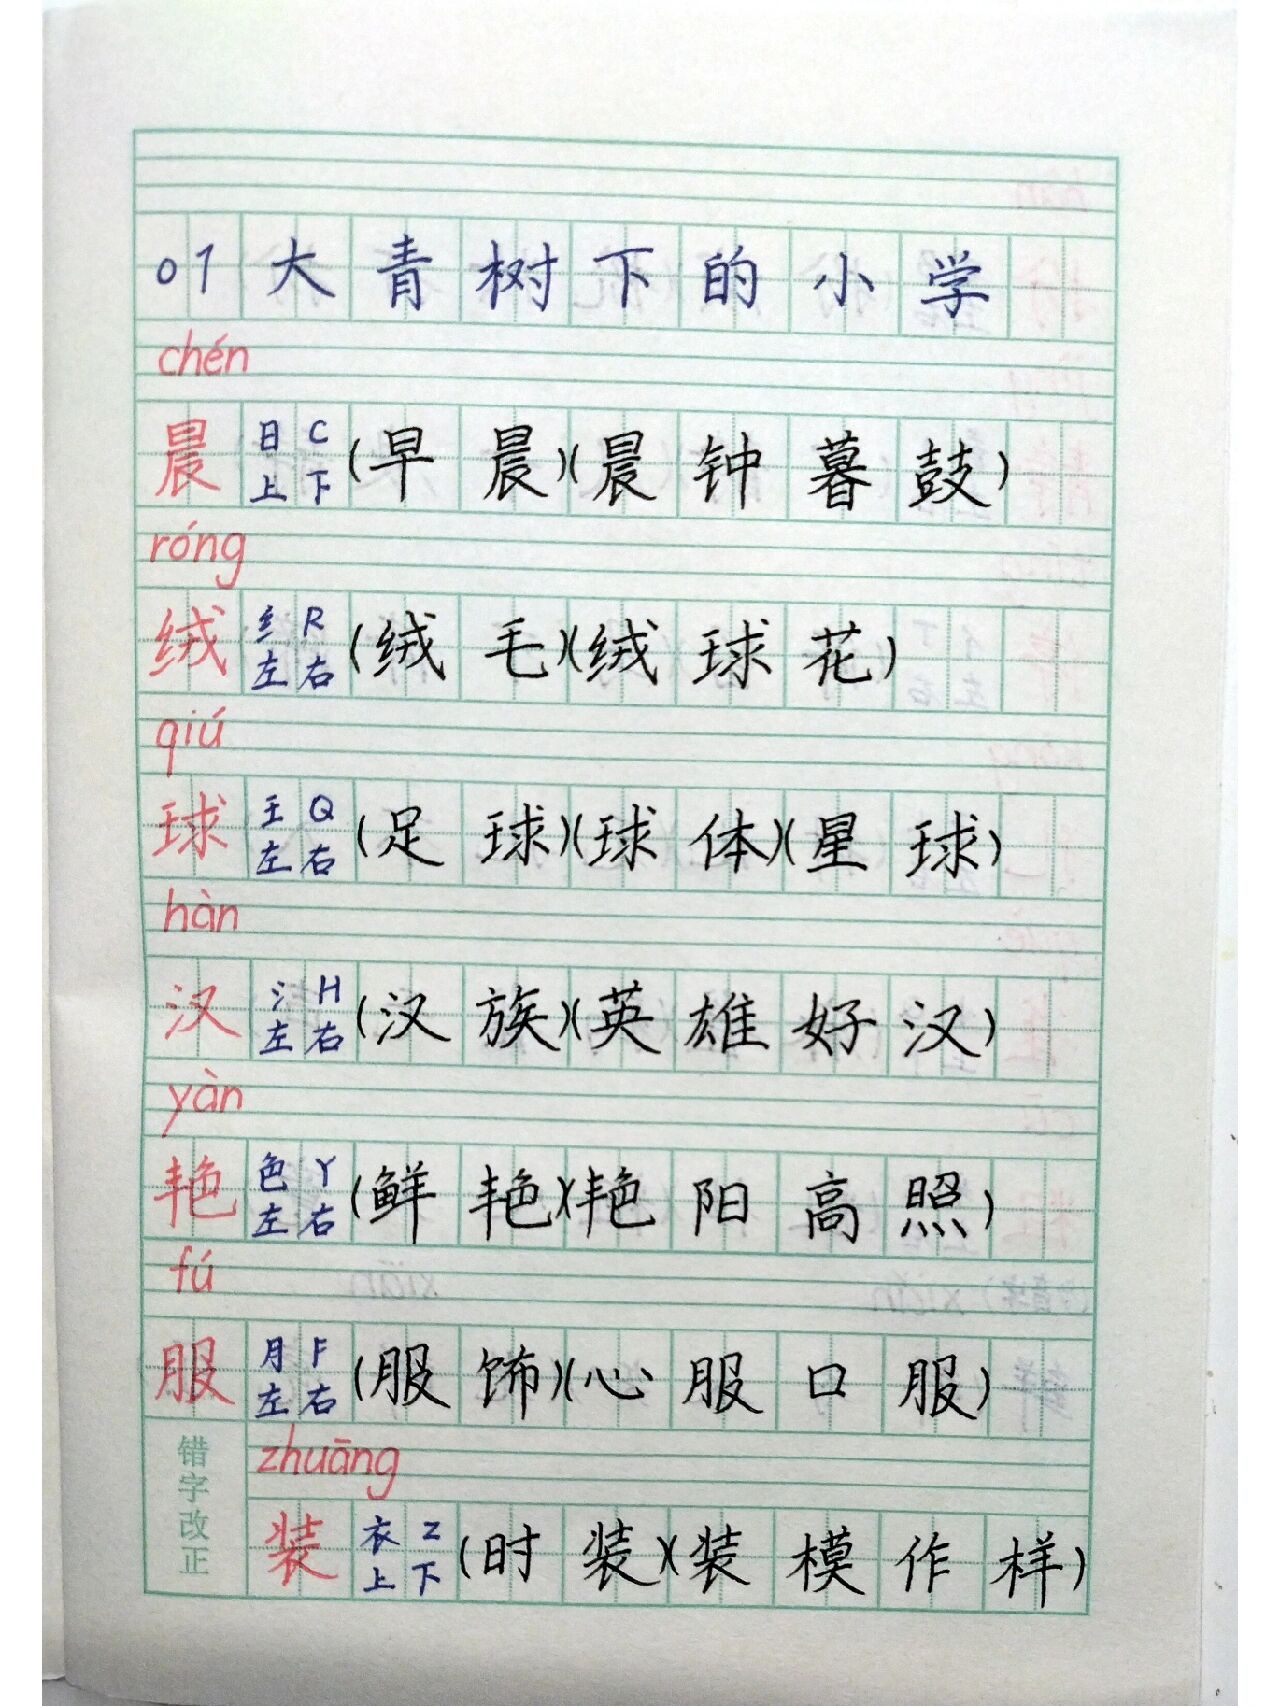 01大青树下的小学
chén
晨 日 C 上 下 (早晨)(晨钟暮鼓)
róng
绒 纟 R 左 右 (绒毛)(绒球花)
qiú
球 王 Q 左 右 (足球)(球体)(星球)
hàn
汉 氵 H 左 右 (汉族)(英雄好汉)
yàn
艳 色 Y 左 右 (鲜艳)(艳阳高照)
fú
服 月 F 左 右 (服饰)(心服口服)
错字改正
zhuāng
装 衣 Z 上 下 (时装)(装模作样)